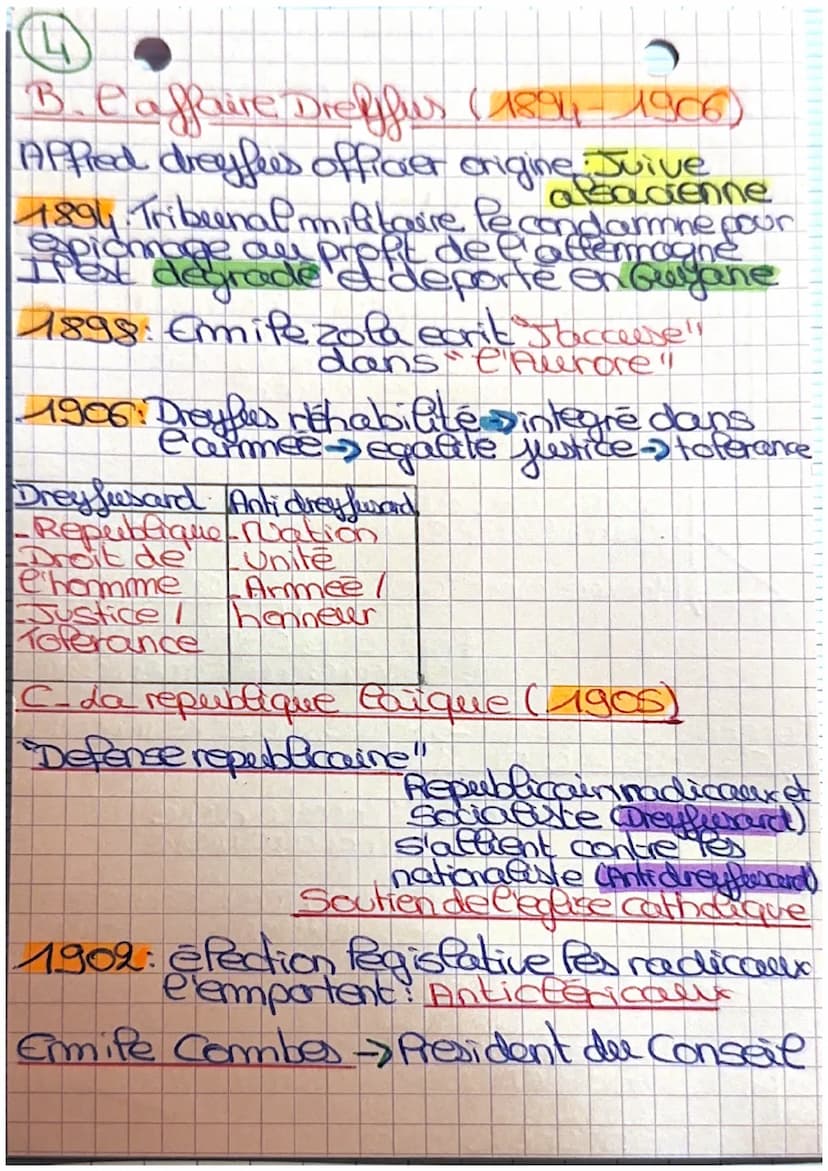 4
B. l'affaire Dreyfus (1894-1906)
Alfred dreyfus officier origine Juive
alsacienne
1894. Tribunal militaire le condamne pour
espionnage au profit de l'allemagne
Il est dégradé et deporté en Guyane
1898: Emile zola ecrit "J'accuse"
dans "l'Aurore"
1906: Dreyfus réhabilité → integré dans
l'armée → egalité justice → tolerance
Dreyfusard Anti dreyfusard
- Republique - Nation
- Droit de - Unité
l'homme - Armée /
- Justice / honneur
Tolerance
C- La republique laïque (1905)
"Defense republicaine"
Republicain radicaux et
Socialiste (Dreyfusard)
s'allient contre les
nationaliste (Antidreyfusard)
Soutien de l'eglise catholique
1902: élection législative les radicaux
l'emportent: Anticléricaux
Emile Combes → President du Conseil